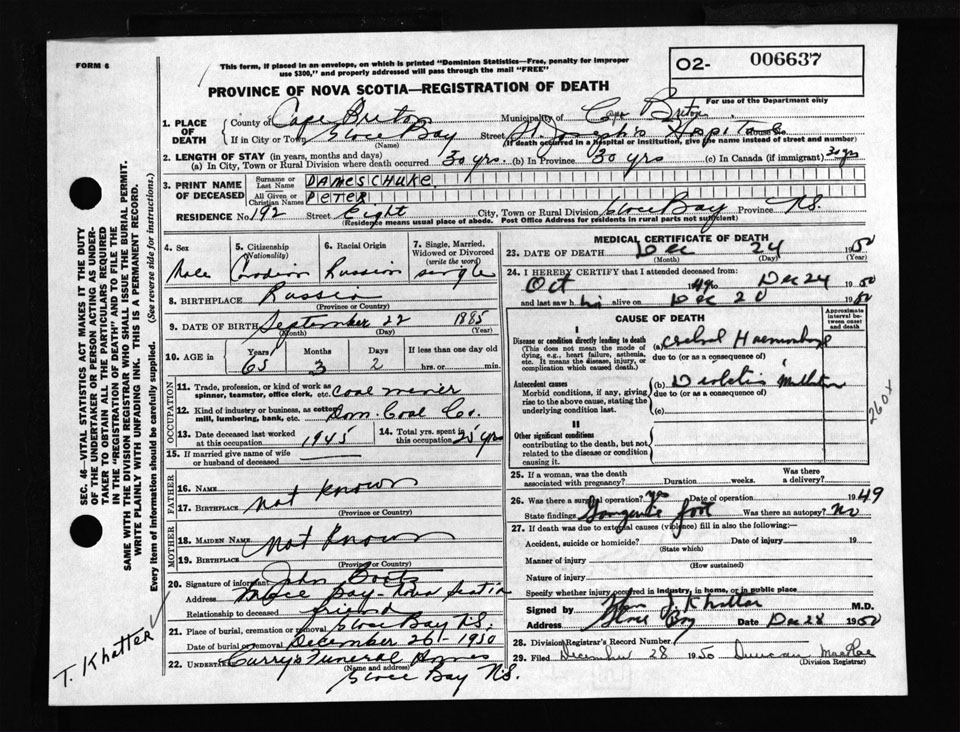 FORM 6
This form, if placed in an envelope, on which is printed "Dominion Statistics—Free, penalty for improper
use $300," and properly addressed will pass through the mail "FREE"
O2- 006637
For use of the Department only
PROVINCE OF NOVA SCOTIA—REGISTRATION OF DEATH
1. PLACE OF DEATH
County of Cape Breton Municipality of Cape Breton
If in City or Town Glace Bay Street St. Joseph's Hospital House No.
(Name) (If death occurred in a hospital or institution, give the name instead of street and number)
2. LENGTH OF STAY (in years, months and days)
(a) In City, Town or Rural Division where death occurred 30 yrs. (b) In Province 30 yrs (c) In Canada (if immigrant) 30 yrs
3. PRINT NAME OF DECEASED
Surname or Last Name DAMESCHUKE
All Given or Christian Names PETER
RESIDENCE No. 192 Street Eight City, Town or Rural Division Glace Bay Province N.S.
(Residence means usual place of abode. Post Office Address for residents in rural parts not sufficient)
4. Sex Male
5. Citizenship (Nationality) Canadian
6. Racial Origin Russian
7. Single, Married, Widowed or Divorced (write the word) single
8. BIRTHPLACE Russia
(Province or Country)
9. DATE OF BIRTH September 22 1885
(Month) (Day) (Year)
10. AGE in Years 65 Months 3 Days 2 If less than one day old hrs. or min.
OCCUPATION
11. Trade, profession, or kind of work as spinner, teamster, office clerk, etc. coal miner
12. Kind of industry or business, as cotton mill, lumbering, bank, etc. Dom. Coal Co.
13. Date deceased last worked at this occupation 1945
14. Total yrs. spent in this occupation 25 yrs
15. If married give name of wife or husband of deceased
FATHER
16. NAME
17. BIRTHPLACE not known
(Province or Country)
MOTHER
18. MAIDEN NAME not known
19. BIRTHPLACE
(Province or Country)
20. Signature of informant John
Address Glace Bay - Nova Scotia
Relationship to deceased friend
21. Place of burial, cremation or removal Glace Bay N.S.
Date of burial or removal December 26 - 1950
22. UNDERTAKER Curry's Funeral Home
(Name and address)
Glace Bay N.S.
MEDICAL CERTIFICATE OF DEATH
23. DATE OF DEATH Dec 24 1950
(Month) (Day) (Year)
24. I HEREBY CERTIFY that I attended deceased from
Oct 1949 to Dec 24 1950
and last saw h im alive on Dec 20 1950
CAUSE OF DEATH
Approximate interval between onset and death
I
Disease or condition directly leading to death
(This does not mean the mode of dying, e.g., heart failure, asthenia, etc. It means the disease, injury, or complication which caused death.)
(a) Cerebral Haemorrhage
due to (or as a consequence of)
Antecedent causes
Morbid conditions, if any, giving rise to the above cause, stating the underlying condition last.
(b) Diabetis Mellitus
due to (or as a consequence of)
(c)
II
Other significant conditions
contributing to the death, but not related to the disease or condition causing it.
25. If a woman, was the death associated with pregnancy? Duration weeks. Was there a delivery?
26. Was there a surgical operation? yes Date of operation 1949
State findings Gangrene foot Was there an autopsy? No
27. If death was due to external causes (violence) fill in also the following:—
Accident, suicide or homicide? Date of injury 19
(State which)
Manner of injury
(How sustained)
Nature of injury
Specify whether injury occurred in industry, in home, or in public place
Signed by Khattar M.D.
Address Glace Bay Date Dec 28 1950
28. Division Registrar's Record Number
29. Filed December 28 1950 Duncan MacRae
(Division Registrar)
SEC. 46—VITAL STATISTICS ACT MAKES IT THE DUTY
OF THE UNDERTAKER OR PERSON ACTING AS UNDER-
TAKER TO OBTAIN ALL THE PARTICULARS REQUIRED
IN THE "REGISTRATION OF DEATH" AND TO FILE THE
SAME WITH THE DIVISION REGISTRAR WHO SHALL ISSUE THE BURIAL PERMIT.
WRITE PLAINLY WITH UNFADING INK. THIS IS A PERMANENT RECORD.
Every item of Information should be carefully supplied. (See reverse side for instructions.)
T. Khatter